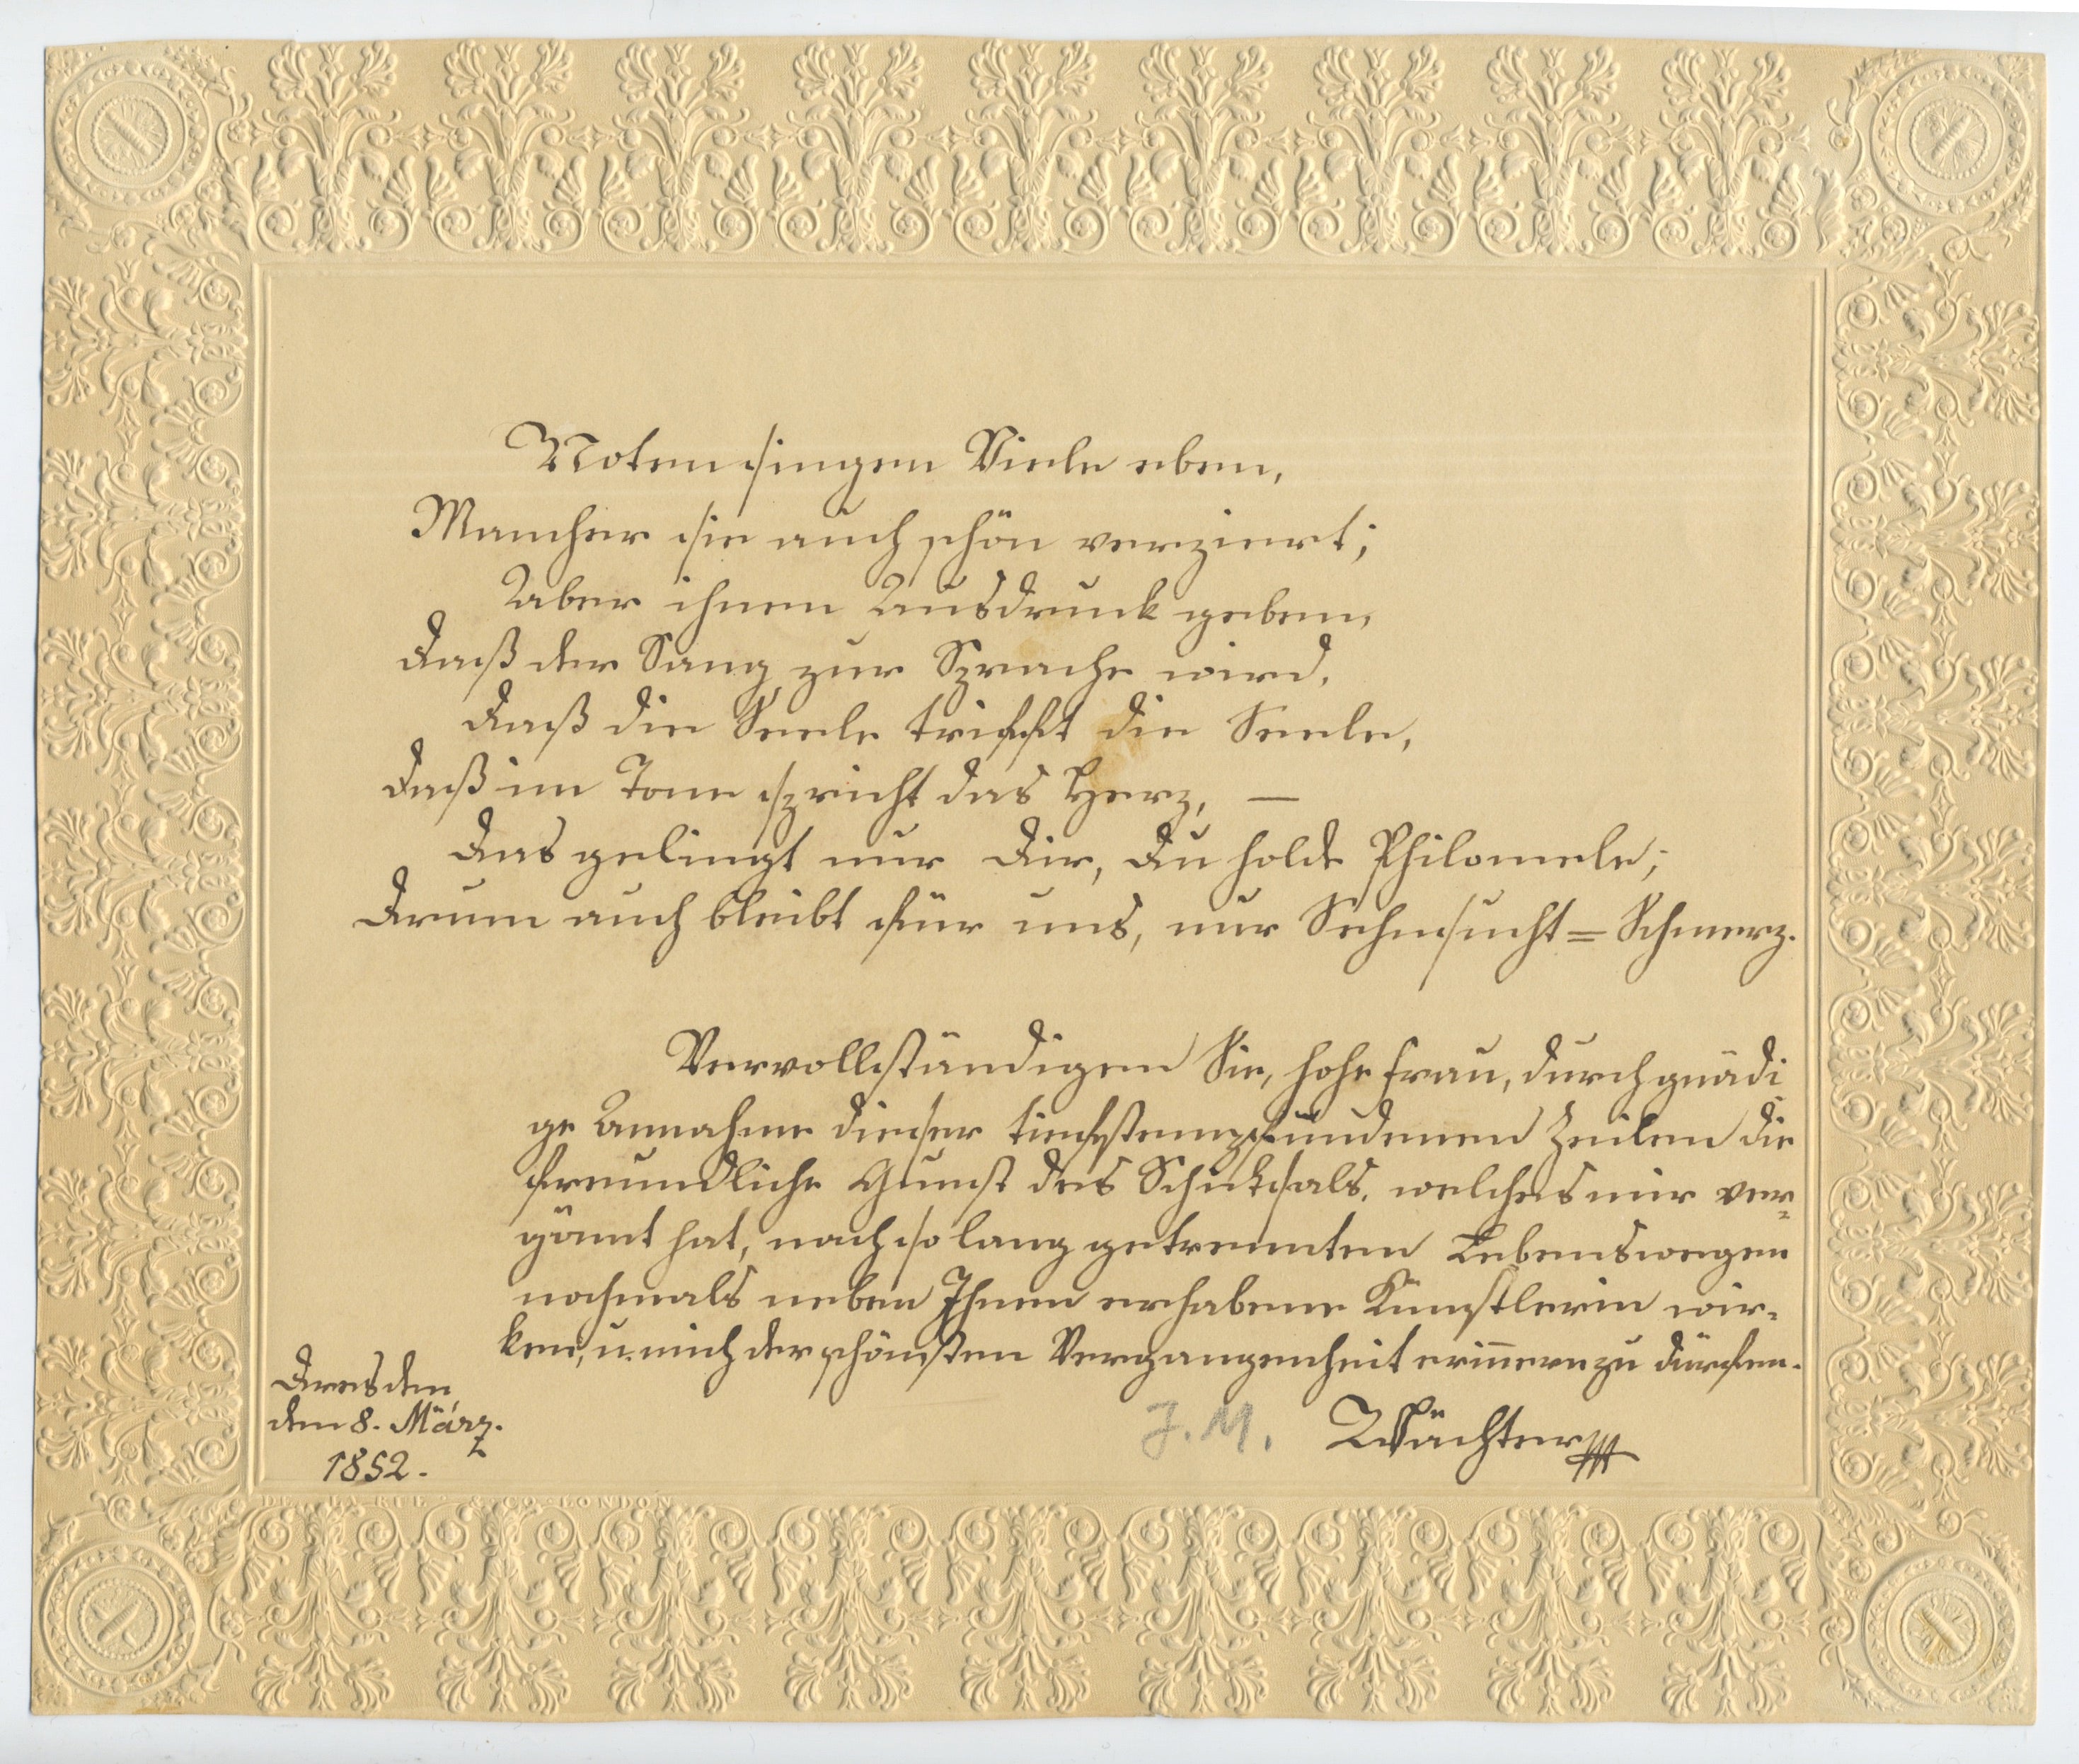 Noten singen Viele eben,
Mancher sie auch schön verziert;
Aber ihnen Ausdruck geben,
Daß der Sang zur Sprache wird,
Daß die Seele trifft die Seele,
Daß im Tone spricht das Herz, —
Das gelingt nur Dir, Du holde Philomele;
Drum auch bleibt für uns, nur Sehnsucht=Schmerz.
Vervollständigen Sie, hohe Frau, durch gnädi
ge Annahme dieser tiefstempfundenen Zeilen die
freundliche Gunst des Schicksals, welches mir ver-
gönnt hat, nach so lang getrennten Lebenswegen
nochmals neben Ihnen erhabene Künstlerin wir-
ken, u. mich der schönsten Vergangenheit erinnern zu dürfen.
Dresden
den 8. März.
1852.
J. M. Wächter
& CO. LONDON